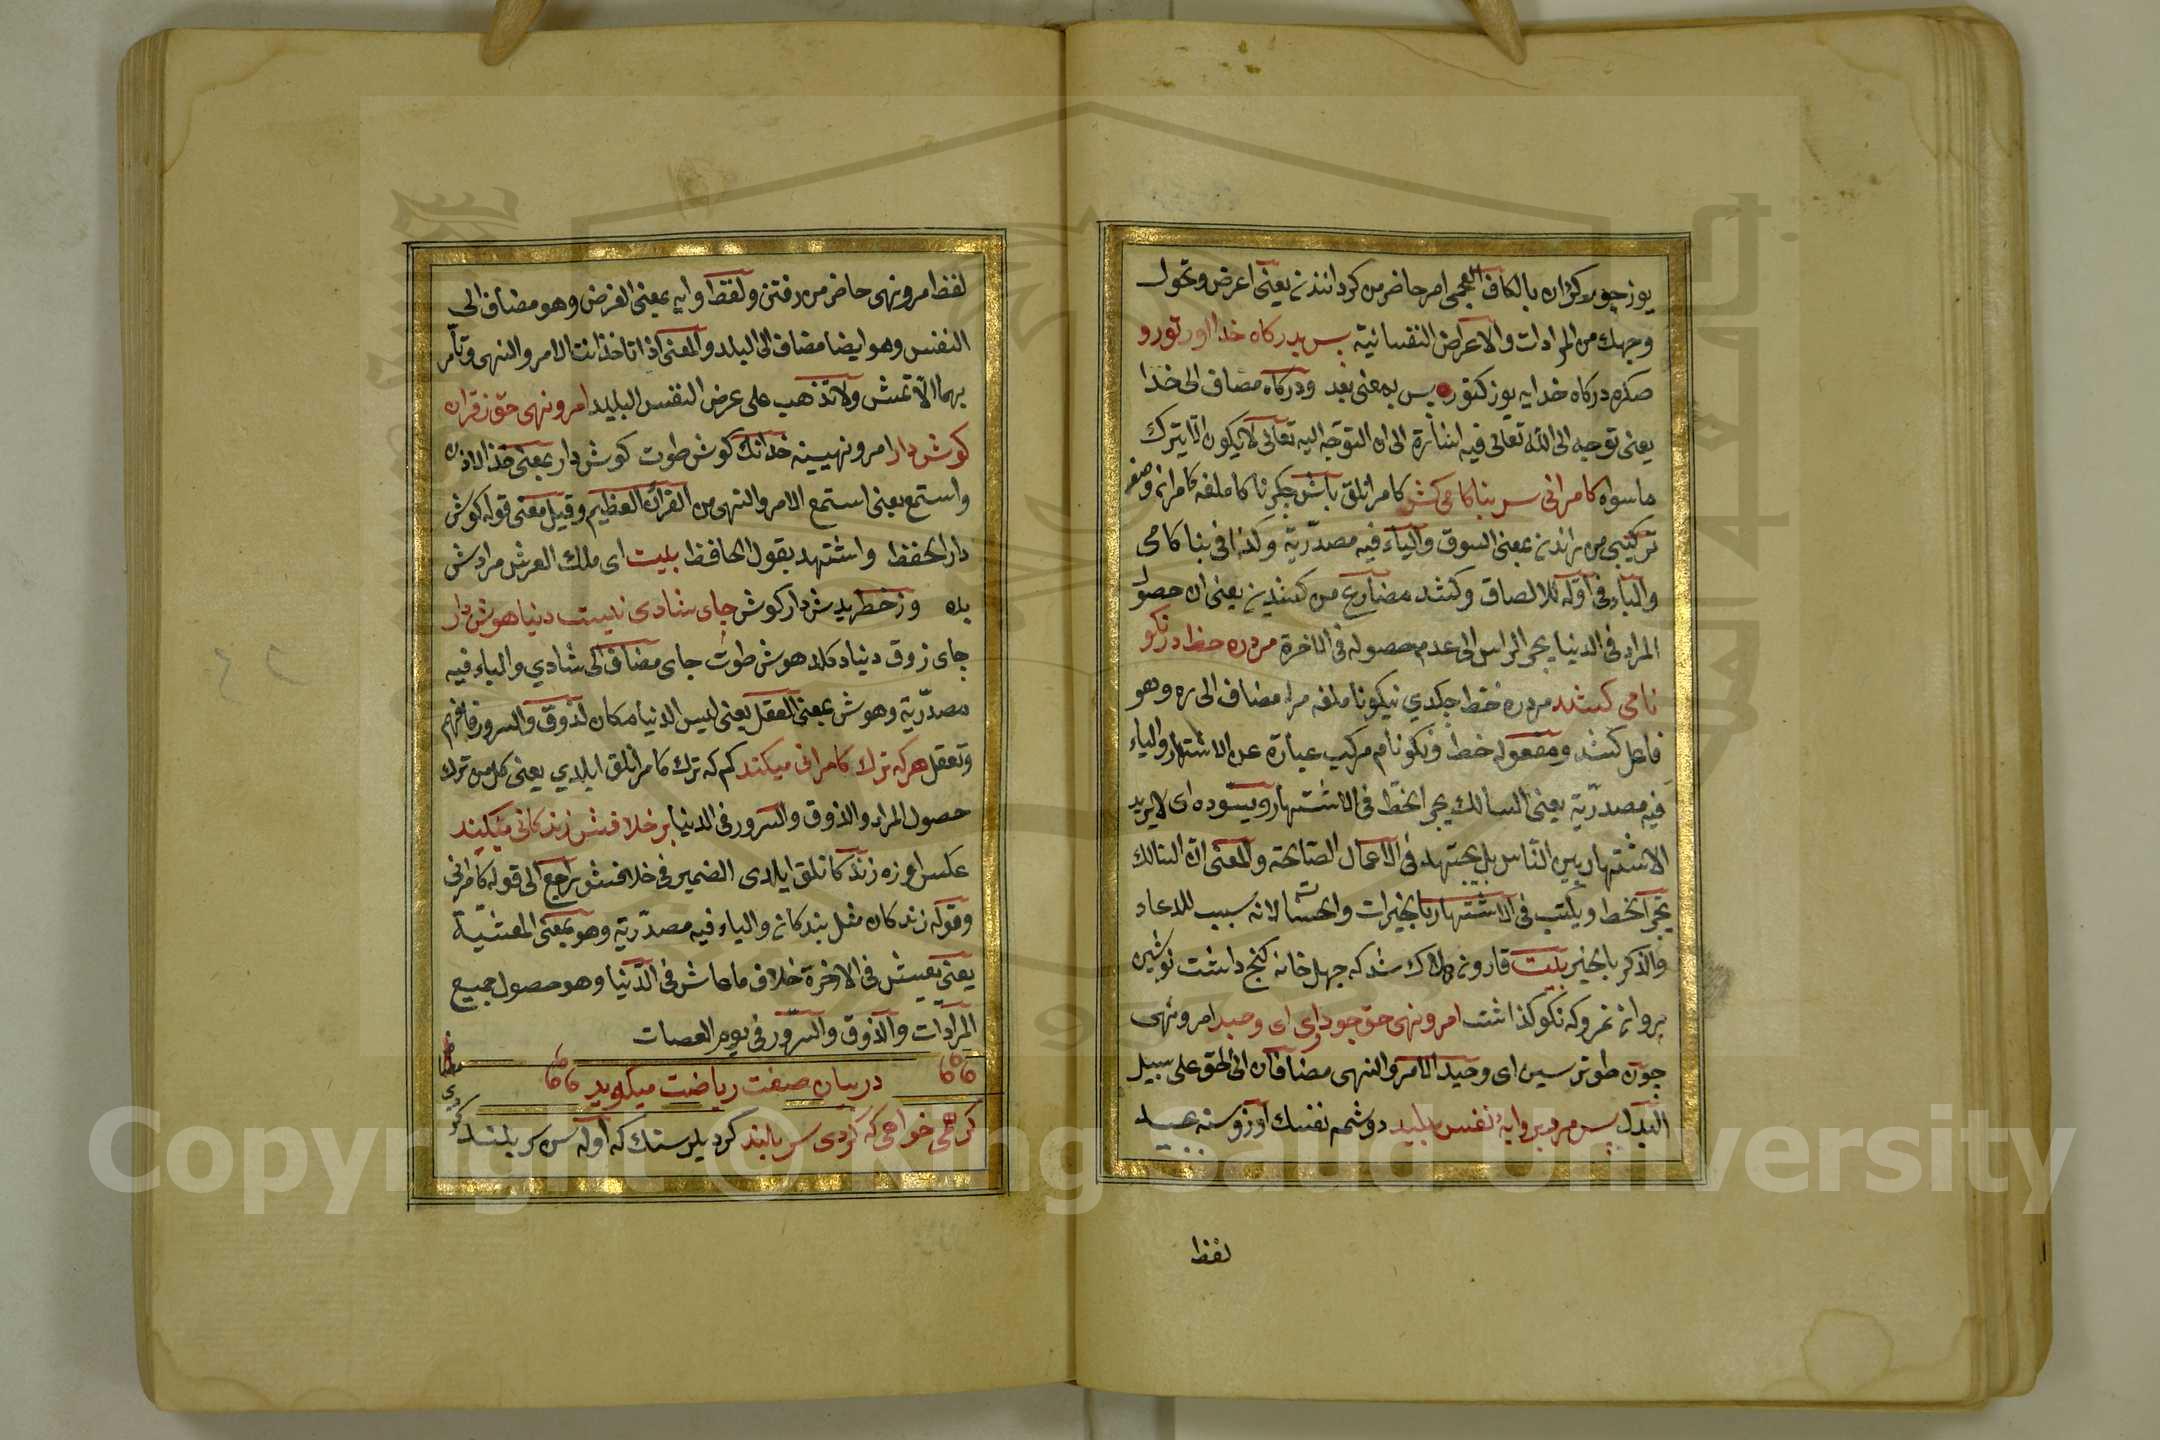 يوز چوركزان بالكاف العجمى امر حاضر من كردانندن يعنى اعرض وتحول
وجهك من المرادات والاعراض النفسانية پس بدركاه خدا اور تو رو
صكره دركاه خدايه يوز كتور پس بمعنى بعد ودركاه مضاف الى خدا
يعنى توجه الى الله تعالى فيه اشارة الى ان التوجه اليه تعالى لا يكون الا بترك
ما سواه كامرانى سر بناكامى كشد كامرانلق باش چكر ناكاملغه كامران وصف
تركيبى من راندن بمعنى السوق والياء فيه مصدرية وكذا فى بناكامى
والباء فى اوله للالصاق وكشد مضارع من كشيدن يعنى ان حصول
المراد فى الدنيا يجر الراس الى عدم حصوله فى الاخرة مرد ره خط در نكو
نامى كشد مرد ره خط چكدى نيكو ناملغه مرد مضاف الى ره وهو
فاعل كشد ومفعوله خط ونكو نام مركب عبارة عن الاشتهار والياء
فيه مصدرية يعنى السالك يجر الخط فى الاشتهار ويسوده اى لا يريد
الاشتهار بين الناس بل يجتهد فى الاعمال الصالحة والمعنى ان السالك
يجر الخط ويكتب فى الاشتهار بالخيرات والحسنات لانه سبب للدعاء
والذكر بالخير بيت قارون هلاك شد كه چهل خانه كنج داشت نوشين
روان نمرد كه نكو كذاشت امر ونهى حق چو دارى اى وحيد امر ونهى
چون طوترسين اى وحيد الامر والنهى مضافان الى الحق على سبيل
البدل پس مرو بر وايۀ نفس پليد دوشمه نفسك ارزوسنه
لفظ
لفظ امرو نهى حاضر من رفتن ولفظ وايه بمعنى الغرض وهو مضاف الى
النفس وهو ايضا مضاف الى البلد والمعنى اذا تاخذ انت الامر والنهى وتأمر
بهما الا تمش ولا تذهب على عرض النفس البليد امر ونهى حق ز قران
كوش دار امر ونهيينه خدانك كوش طوت كوش دار بمعنى خذ الاذن
واستمع يعنى استمع الامر والنهى من القران العظيم وقيل معنى قوله كوش
دار الحفظ واشتهد بقول الحافظ بيت اى ملك العرش مرادش
بده وز خطر بدش دار كوش جاى شادى نيست دنيا هوش دار
جاى زوق دنيا دكلدر هوش طوت جاى مضاف الى شادي والياء فيه
مصدرية وهوش بمعنى العقل يعنى ليس الدنيا مكان لذوق والسرور فافهم
وتعقل هر كه ترك كامرانى ميكند كم كه ترك كامرانلق ايلدي يعنى كل من ترك
حصول المراد والذوق والسرور فى الدنيا بر خلافش زندكانى ميكند
عكس اوزره زندكانلق ايلدى الضمير فى خلافش راجع الى قوله كامرانى
وقوله زندكان مثل بندكان والياء فيه مصدرية وهو بمعنى المعشية
يعنى يعيش فى الاخرة خلاف ما عاش فى الدنيا وهو حصول جميع
المرادات والذوق والسرور فى يوم العصات
در بيان صفت رياضت ميكويد
كر همى خواهى كه كردى سر بلند كر ديلرسنك كه اوله سن سر بلند